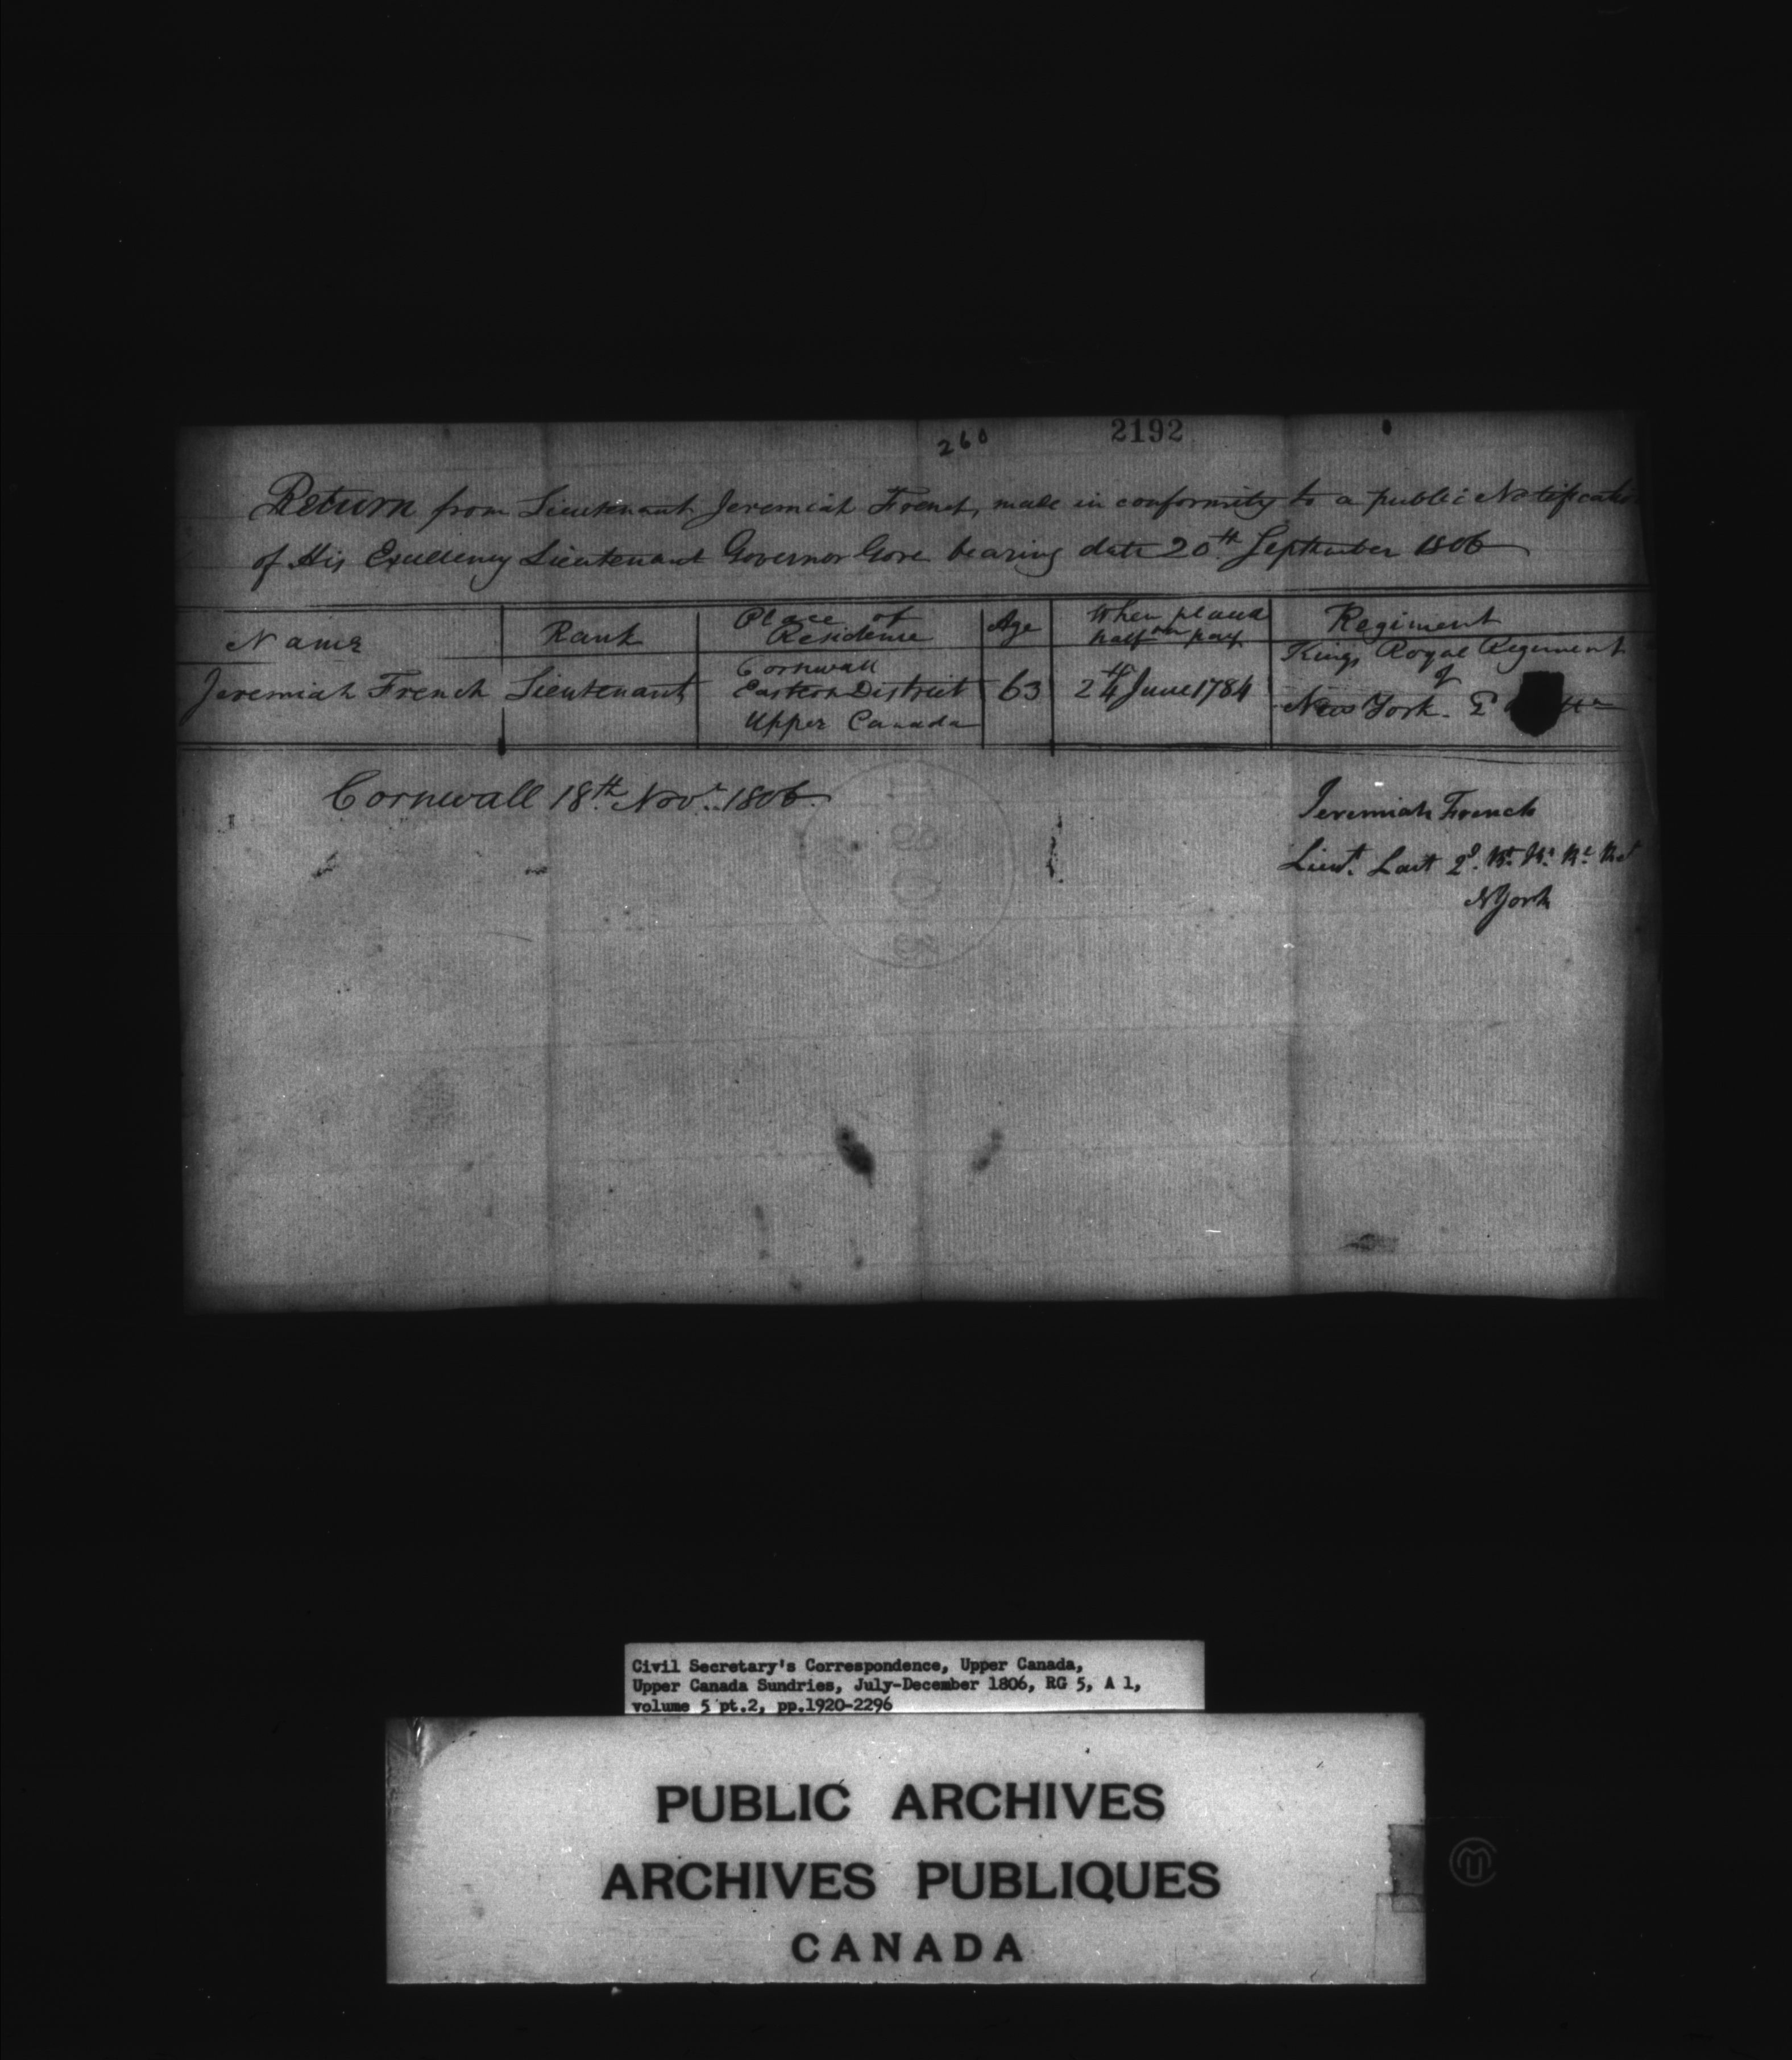 260
2192
Return from Lieutenant Jeremiah French, made in conformity to a public Notificatio
of His Excellency Lieutenant Governor Gore bearing date 20th September 1806
Name
Rank
Place of
Residence
Age
When placed
on
half pay
Regiment
Jeremiah French
Lieutenant
Cornwall
Eastern District
Upper Canada
63
24th June 1784
Kings Royal Regiment
of
New York.
Cornwall 18th Novr. 1806.
Jeremiah French
Lieut. Late 2d. Bt. K. Rl. Rt
NYork
Civil Secretary's Correspondence, Upper Canada,
Upper Canada Sundries, July-December 1806, RG 5, A 1,
volume 5 pt.2, pp.1920-2296
PUBLIC ARCHIVES
ARCHIVES PUBLIQUES
CANADA